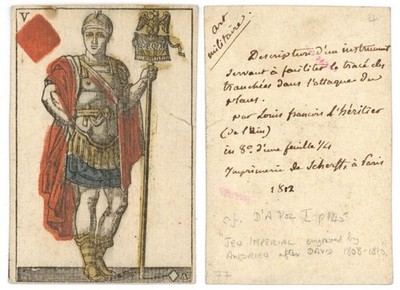 V
V
art
militaire.
Description d'un instrument
servant à faciliter le tracé des
tranchées dans l'attaque des
places.
par Louis François L'héritier
(de l'Ain)
in 8° d'une feuille 1/4
Imprimerie de Scherff, à Paris
1812
cf. D'A Vol I p 125
JEU IMPERIAL engraved by
ANDRIEU after DAVID 1808-1810.